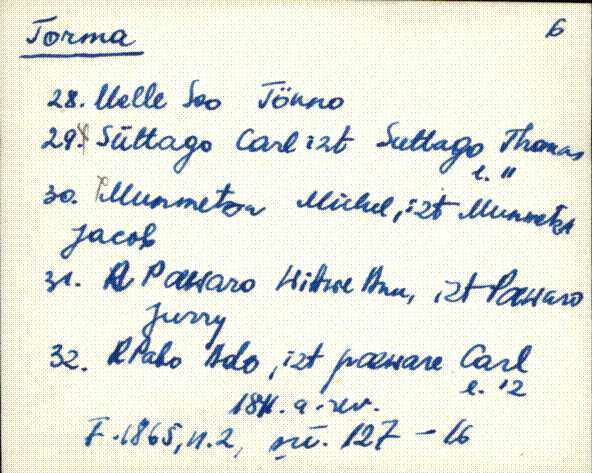 Torma 6
28. Melle Soo Tönno
29. Süttago Carl izt Suttago Thomas
l. "
30. Munmetza Michel, izt Munmetza
Jacob
31. R Pawaro Wittwe Ann, izt Pawaro
Jurry
32. R Pabo Ado, izt pawware Carl
l. 12
1811. a. rev.
F. 1865, n. 2, sü. 127 - 16